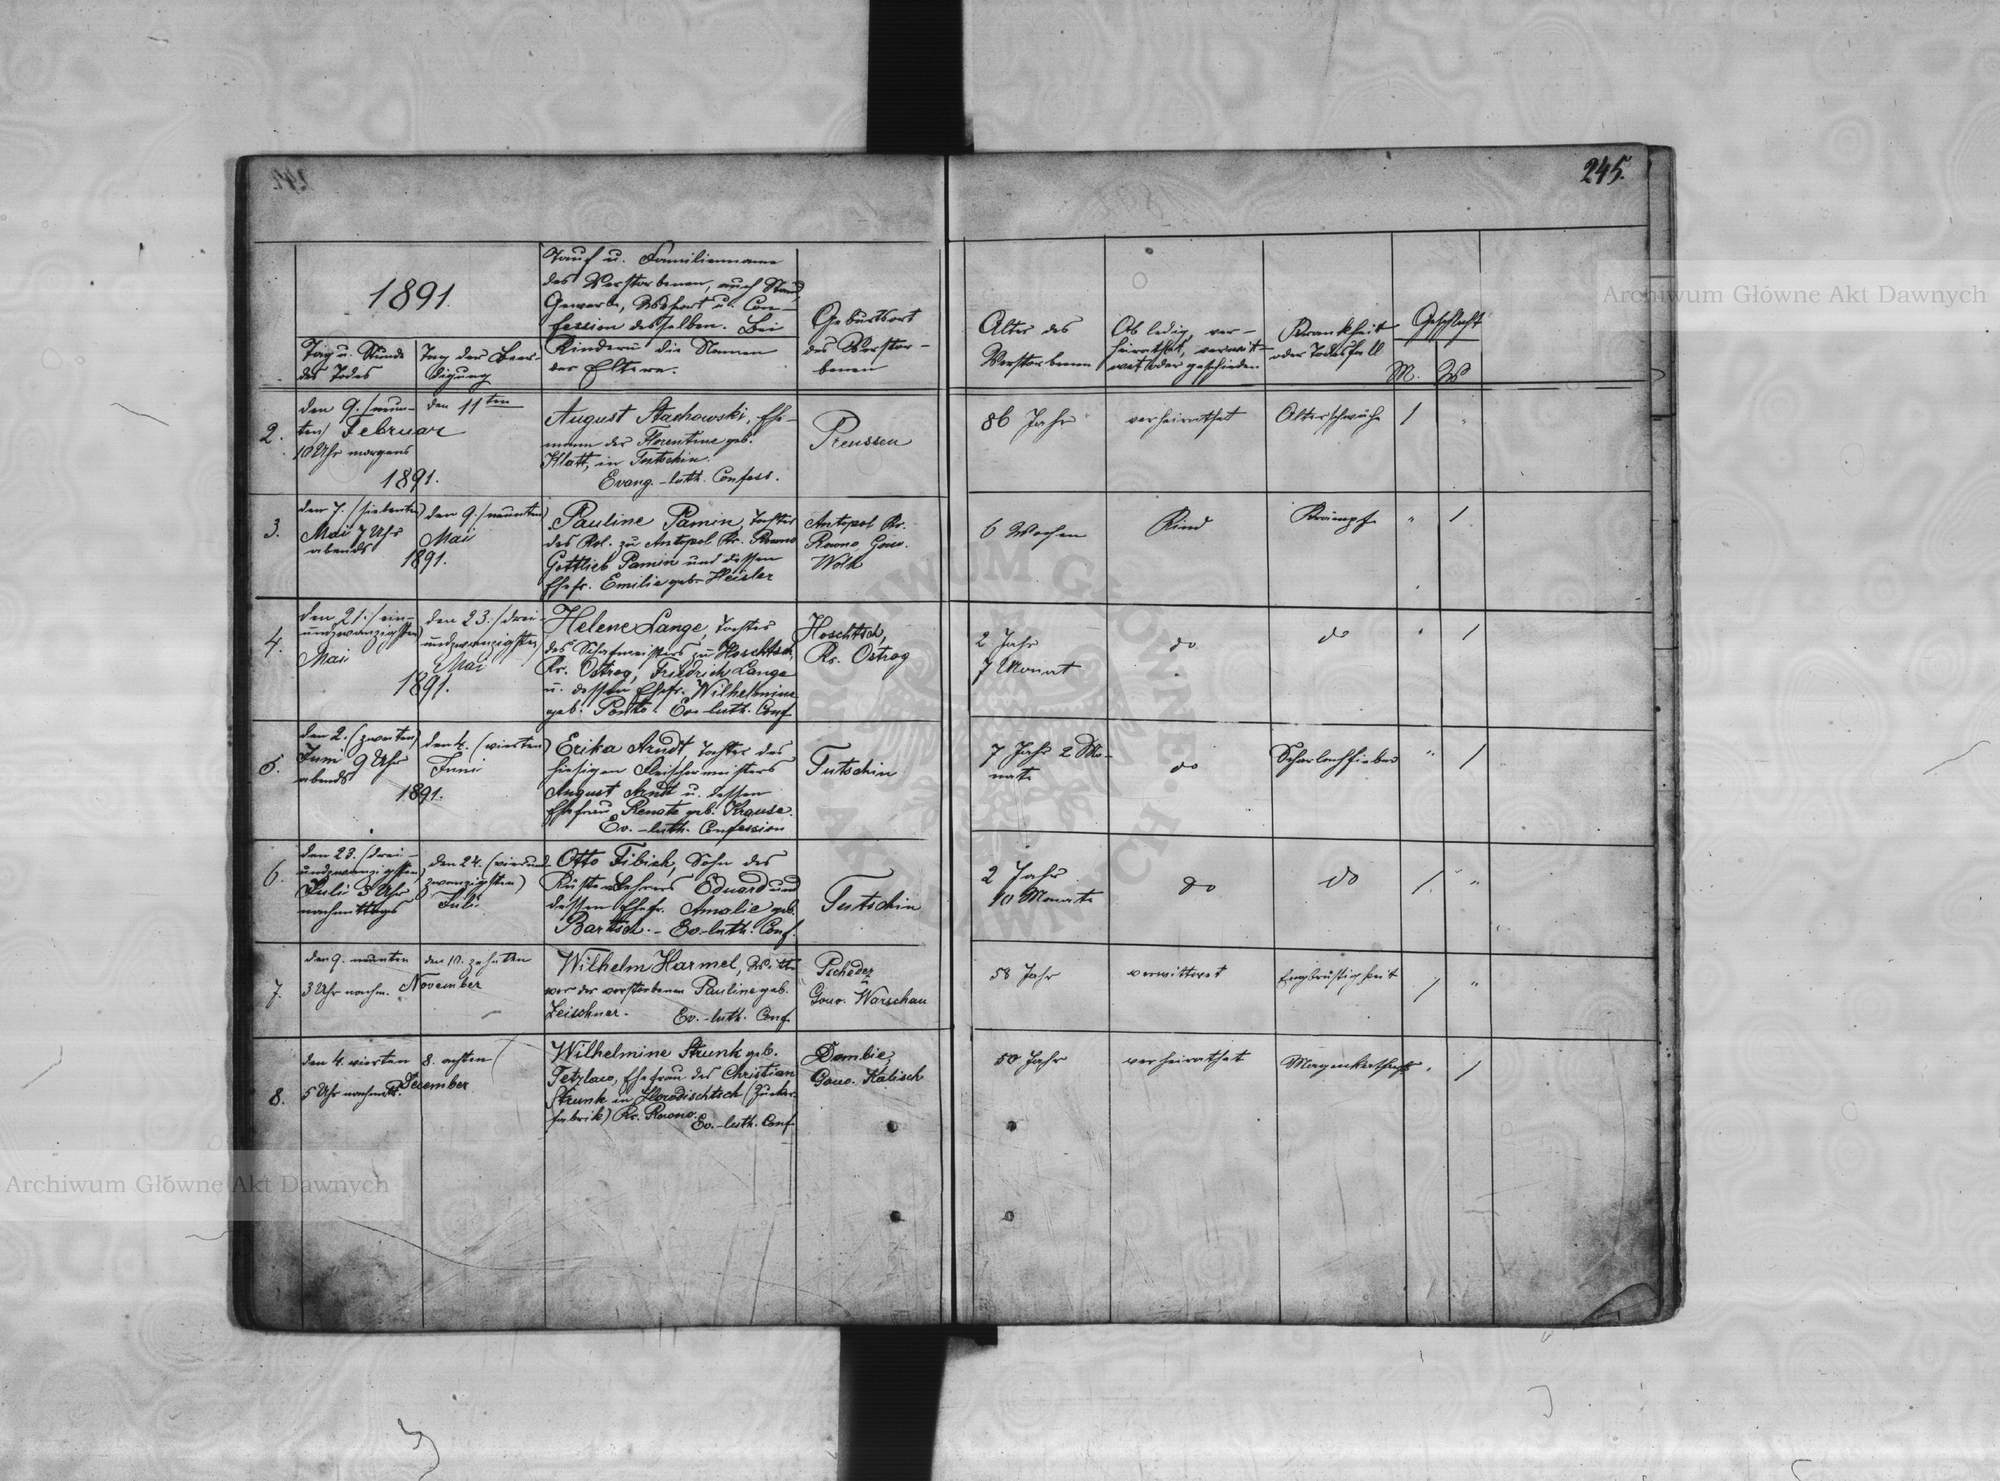 245.
1891.
Tauf u. Familienname
des Verstorbenen, auch Stand,
Gewerbe, Wohnort u. Con-
fession desselben. Bei
Kindern die Namen
der Eltern.
Tag u. Stunde
des Todes
Tag der Beer-
digung
Geburtsort
des Verstor-
benen
Alter des
Verstorbenen
Ob ledig, ver-
heirathet, verwit-
wet oder geschieden
Krankheit
oder Todesfall
Geschlecht
M. W
2.
den 9. (neun-
ten) Februar
10 Uhr morgens
1891.
den 11ten
August Stachowski, Ehe-
mann der Florentine geb.
Klatt, in Tutschin.
Evang.-luth. Confess.
Preussen
86 Jahr
verheirathet
Altersschwäche
1 "
3.
den 7. (siebenten)
Mai 7 Uhr
abends
1891.
den 9. (neunten)
Mai
Pauline Pamin, Tochter
des Kol. zu Antopol Kr. Rowno
Gottlieb Pamin und dessen
Ehefr. Emilie geb. Heisler
Antopol Kr.
Rowno Gouv.
Wolh
6 Wochen
Kind
Krämpfe
" 1
4.
den 21. (ein-
undzwanzigsten)
Mai
1891.
den 23. (drei-
undzwanzigsten)
Mai
Helene Lange, Tochter
des Schafmeisters zu Hoschtsch,
Kr. Ostrog, Friedrich Lange
u. dessen Ehefr. Wilhelmine
geb. Ev.-luth. Conf
Hoschtsch,
Kr. Ostrog
2 Jahr
7 Monat
do
do
" 1
5.
den 2. (zweiten)
Juni 9 Uhr
abends
1891.
den 4. (vierten)
Juni
Erika Arndt Tochter des
hiesigen Fleischermeisters
August Arndt u. dessen
Ehefrau Renate geb. Krause.
Ev.-luth. Confession
Tutschin
7 Jahr 2 Mo-
nate
do
Scharlachfieber
" 1
6.
den 23. (drei-
undzwanzigsten)
Juli 3 Uhr
nachmittags
den 24. (vierund-
zwanzigsten)
Juli
Otto Fibich, Sohn des
Küsterlehrers Eduard und
dessen Ehefr. Amalie geb.
Bartsch. - Ev.-luth. Conf.
Tutschin
2 Jahr
10 Monate
do
do
1. "
7.
den 9. neunten
3 Uhr nachm.
den 10. zehnten
November
Wilhelm Harmel, Witt-
wer der verstorbenen Pauline geb.
Zeischner. Ev.-luth. Conf.
Pschedez
Gouv. Warschau
58 Jahr
verwittwet
Engbrüstigkeit
1 "
8.
den 4. vierten
5 Uhr nachmitt.
8. achten
Dezember
Wilhelmine Strunk geb.
Tetzlaw, Ehefrau des Christian
Strunk in Horodischtsch (Zucker-
fabrik) Kr. Rowno.
Ev.-luth. Conf.
Dombie,
Gouv. Kalisch
50 Jahr
verheirathet
" 1
Archiwum Główne Akt Dawnych
Archiwum Główne Akt Dawnych